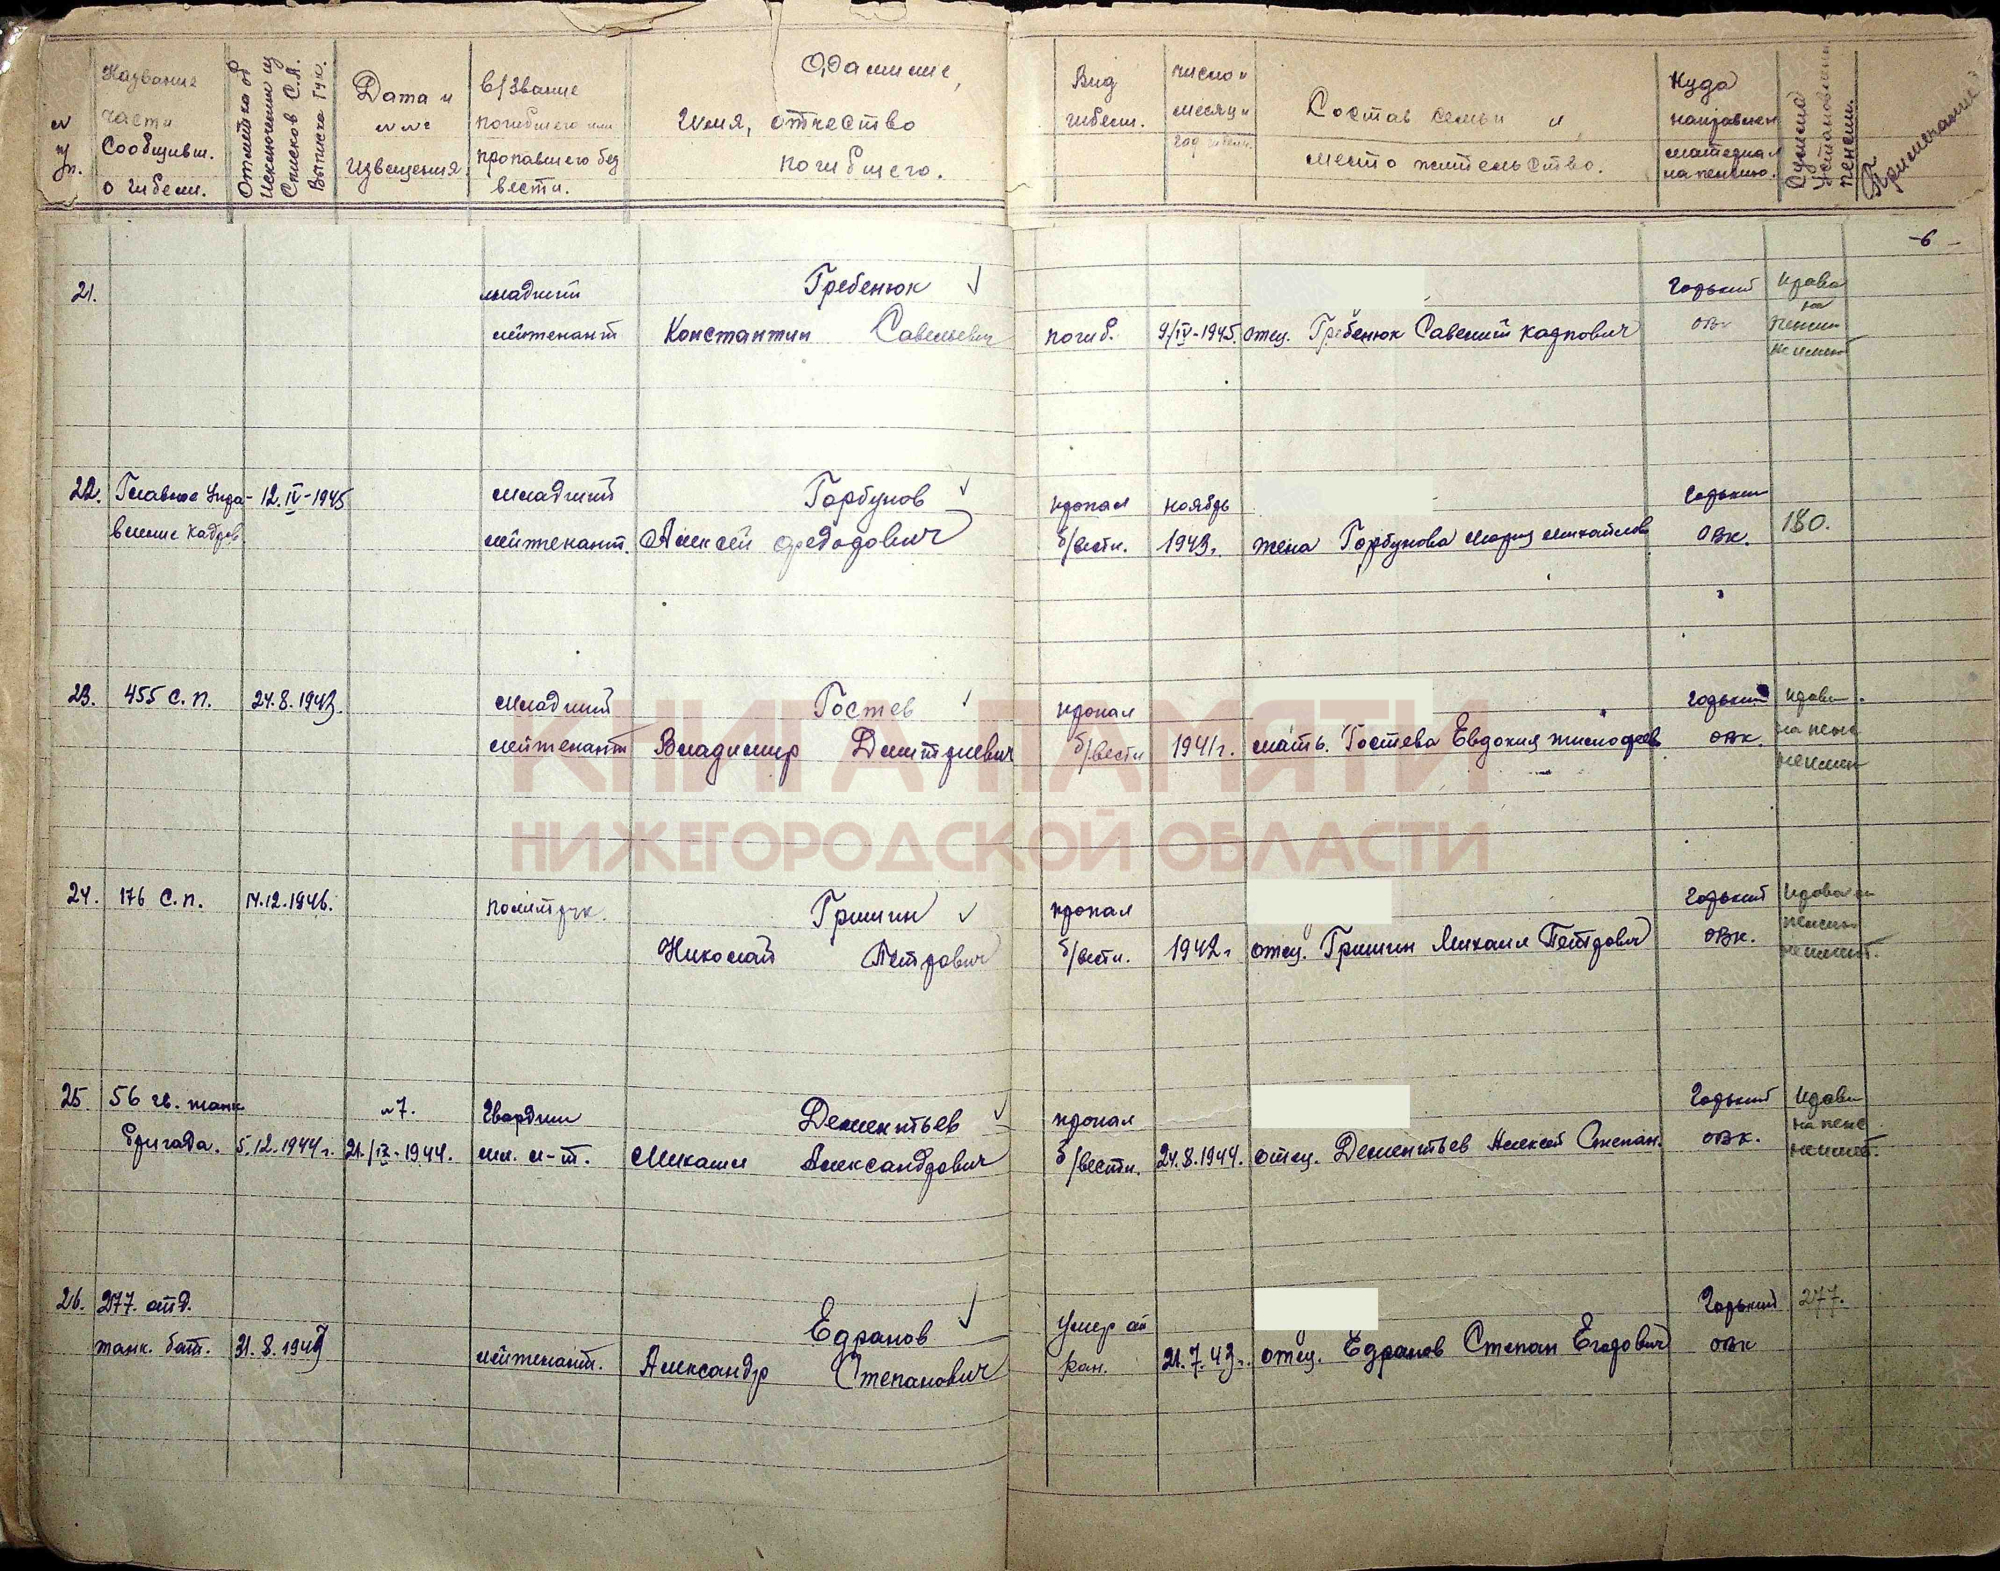 № п/п.
Название части Сообщивш. о гибели.
Отметка об Исключении из Списков С.А. Выписка Гук.
Дата и №№ извещения
в/Звание погибшего или пропавшего без вести.
Фамилие, Имя, отчество погибшего.
Вид гибели.
число и месяц и год гибели.
Состав семьи и место жительство.
Куда направлен материал на пенсию.
Сумма Установлен. пенсии.
Примечание
-6-
21.
младший Гребенюк Горький права
лейтенант Константин Савельевич погиб. 9/IV-1945. отец. Гребенюк Савелий Карпович ОВК на пенсии не имеют
22. Главное Упра- 12.IV-1945 младший Горбунов пропал ноябрь Горький
вление кадров лейтенант. Алексей Федорович б/вести. 1943г. жена Горбунова Мария Михайлов. ОВК. 180.
23. 455 С.П. 24.8.1943. младший Гостев пропал Горький
лейтенант Владимир Дмитриевич б/вести 1941г. мать. Гостева Евдокия ОВК. на пенс
24. 176 С.П. 14.12.1946. политрук. Гришин пропал Горький
Николай Петрович б/вести. 1942г отец. Гришин Михаил Петрович ОВК.
25. 56 гв. танк №7. Гвардии Дементьев пропал Горький
бригада. 5.12.1944г. 21/IX-1944. мл. л-т. Михаил Александрович б/вести. 24.8.1944. отец. Дементьев Алексей Степан. ОВК. на пенс
26. 277. отд. Едранов Умер от Горький 277.
танк. бат. 31.8.1943 лейтенант. Александр Степанович ран. 21.7.43г. отец. Едранов Степан Егорович ОВК
КНИГА ПАМЯТИ
НИЖЕГОРОДСКОЙ ОБЛАСТИ